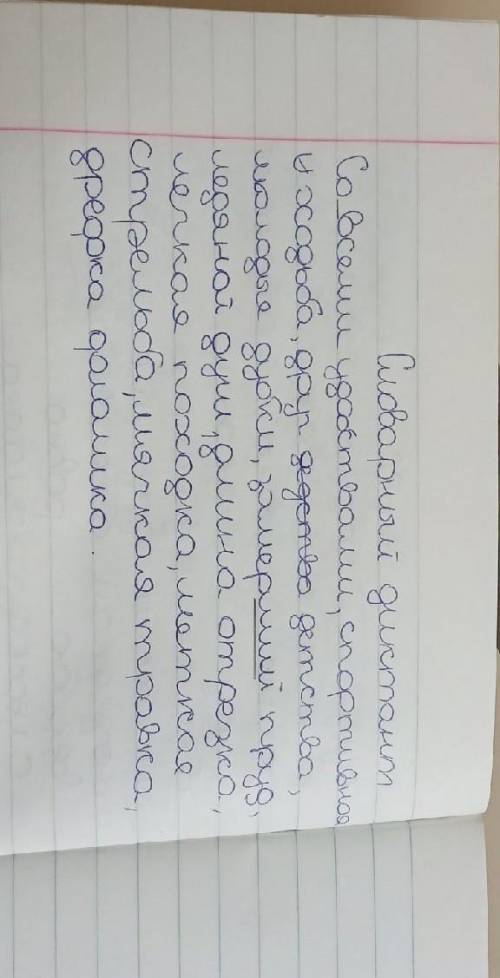 Словарный диктант
Со всеми удобствами, спортивная
и ходьба, друг дедства детства,
молодые дубки, замерзший пруд,
ледяной душ, длина отрезка,
легкая походка, меткая
стрельба, мягкая травка,
дрефка домашка.